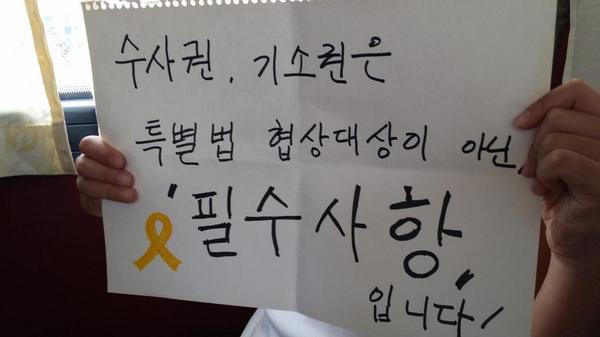 수사권, 기소권은
특별법 협상대상이 아닌,
'필수사항'
입니다!